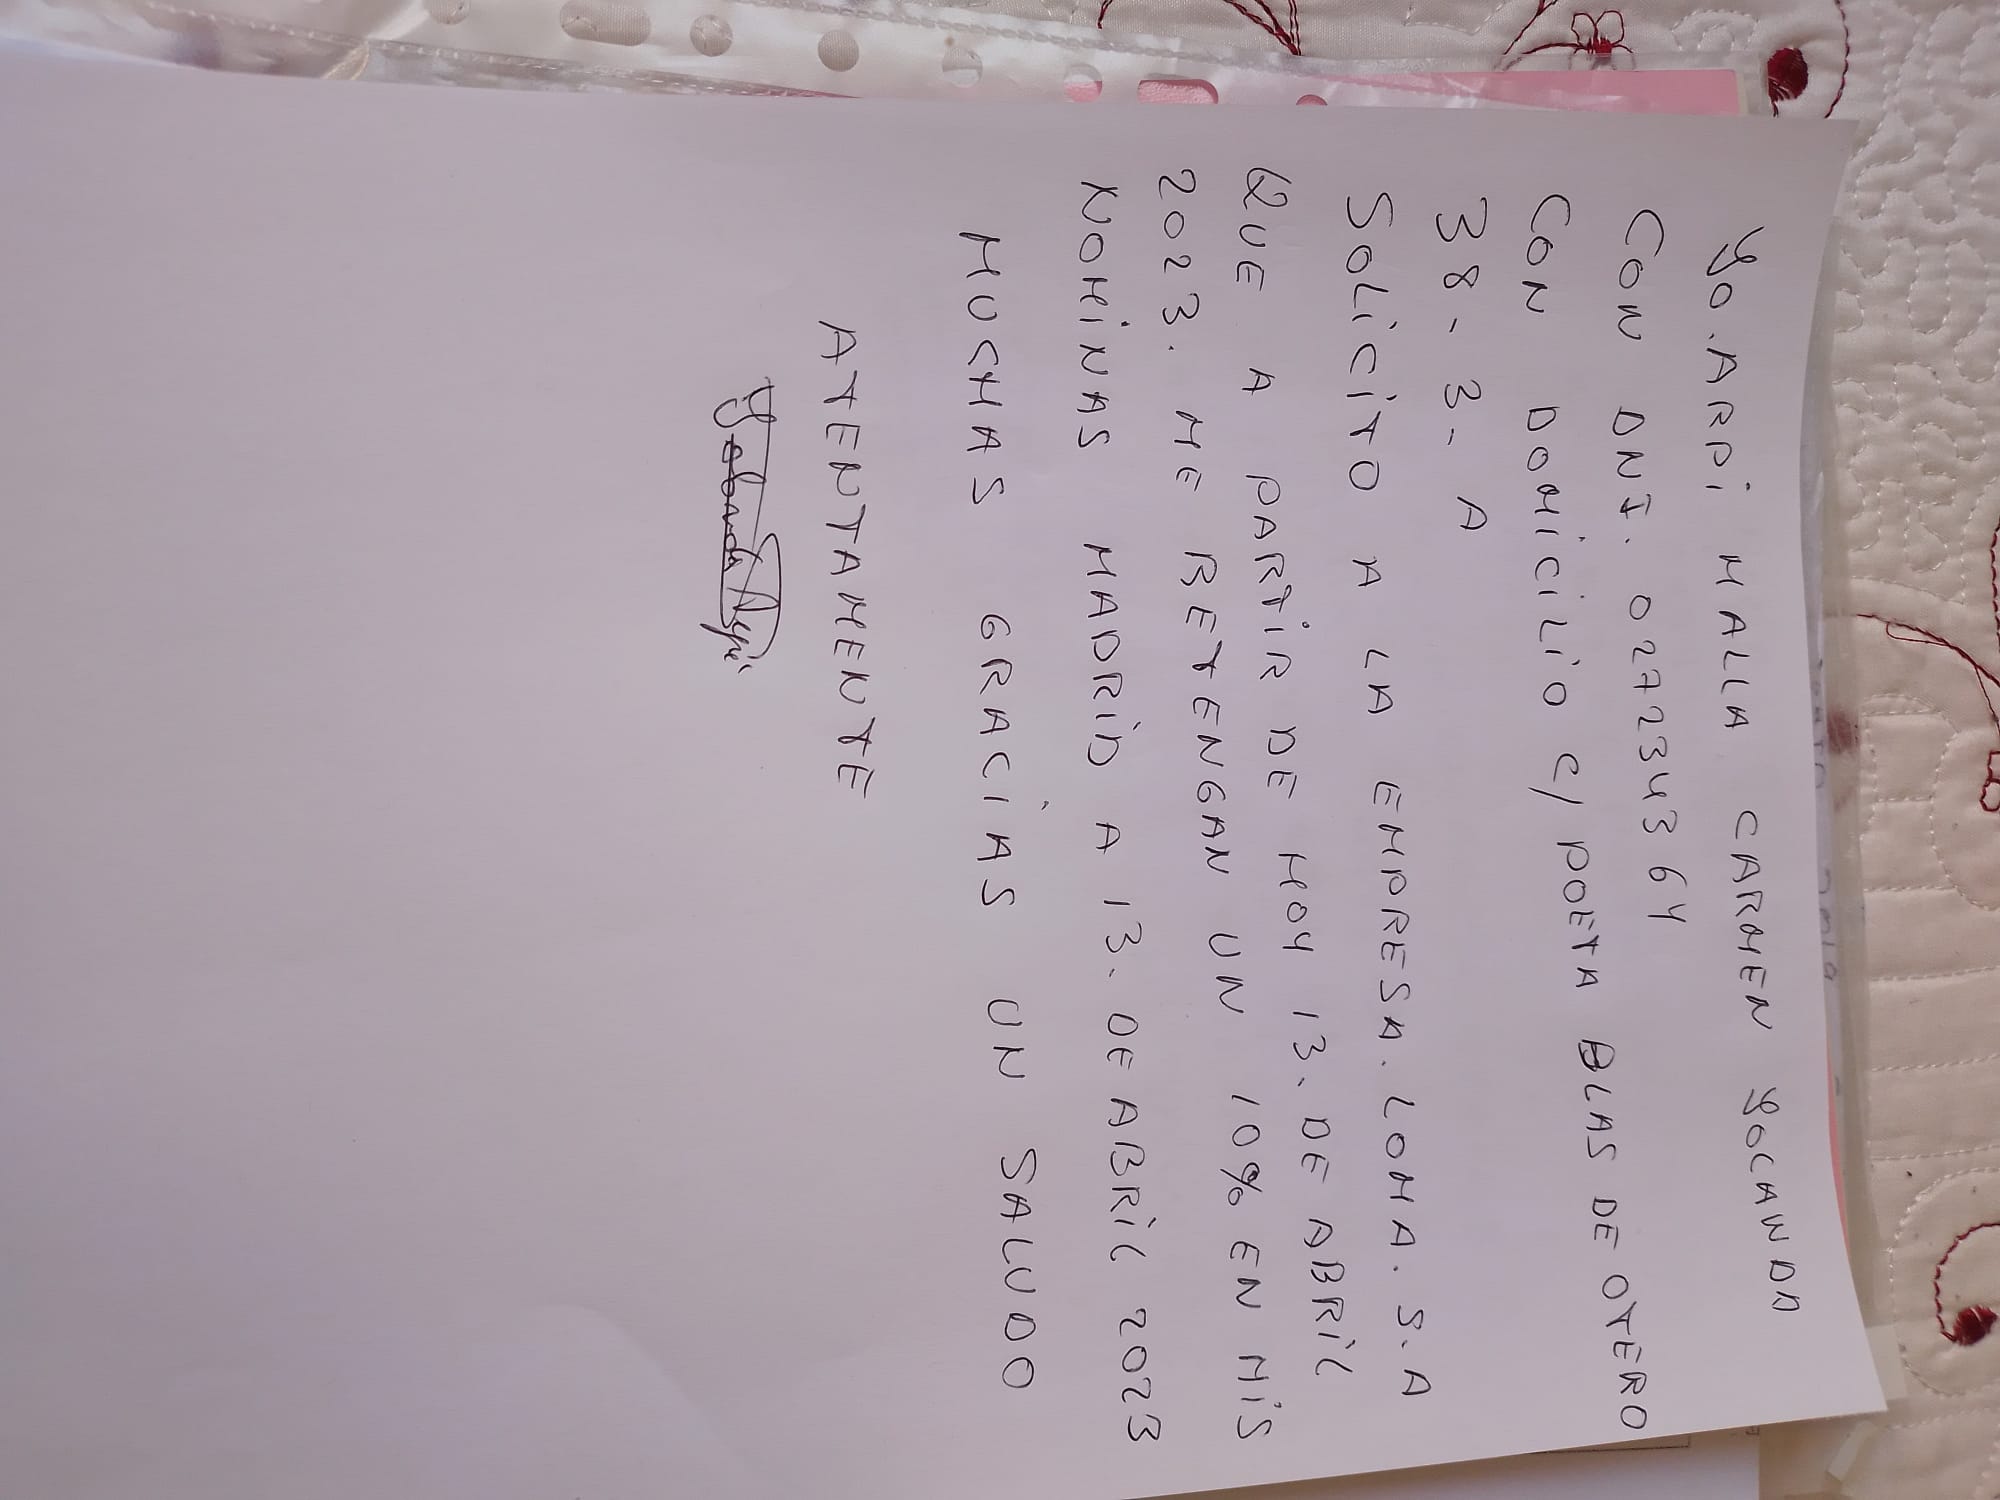 YO. ARPI MALLA CARMEN YOCANDA
CON DNI. 02723436Y
CON DOMICILIO C/ POETA BLAS DE OTERO
38-3-A
SOLICITO A LA EMPRESA. LOMA. S.A
QUE A PARTIR DE HOY 13. DE ABRIL
2023. ME RETENGAN UN 10% EN MIS
NOMINAS MADRID A 13. DE ABRIL 2023
MUCHAS GRACIAS UN SALUDO
ATENTAMENTE